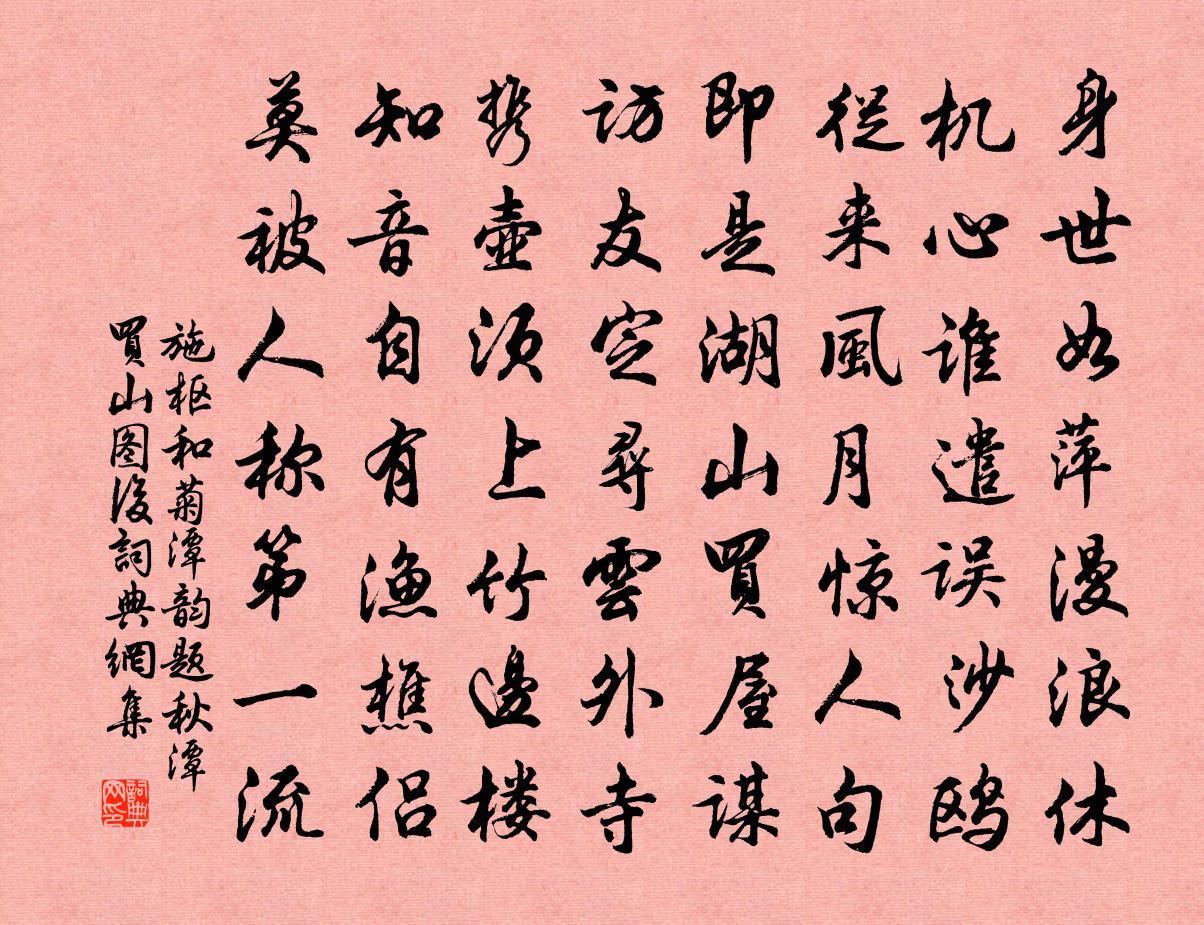 身世如萍漫浪休
机心谁遣误沙鸥
從来風月惊人句
即是湖山買屋谋
访友定尋雲外寺
携壺须上竹邊楼
知音自有渔樵侣
莫被人称第一流
施枢和菊潭韵题秋潭
買山图後詞典網集
詞典
网印